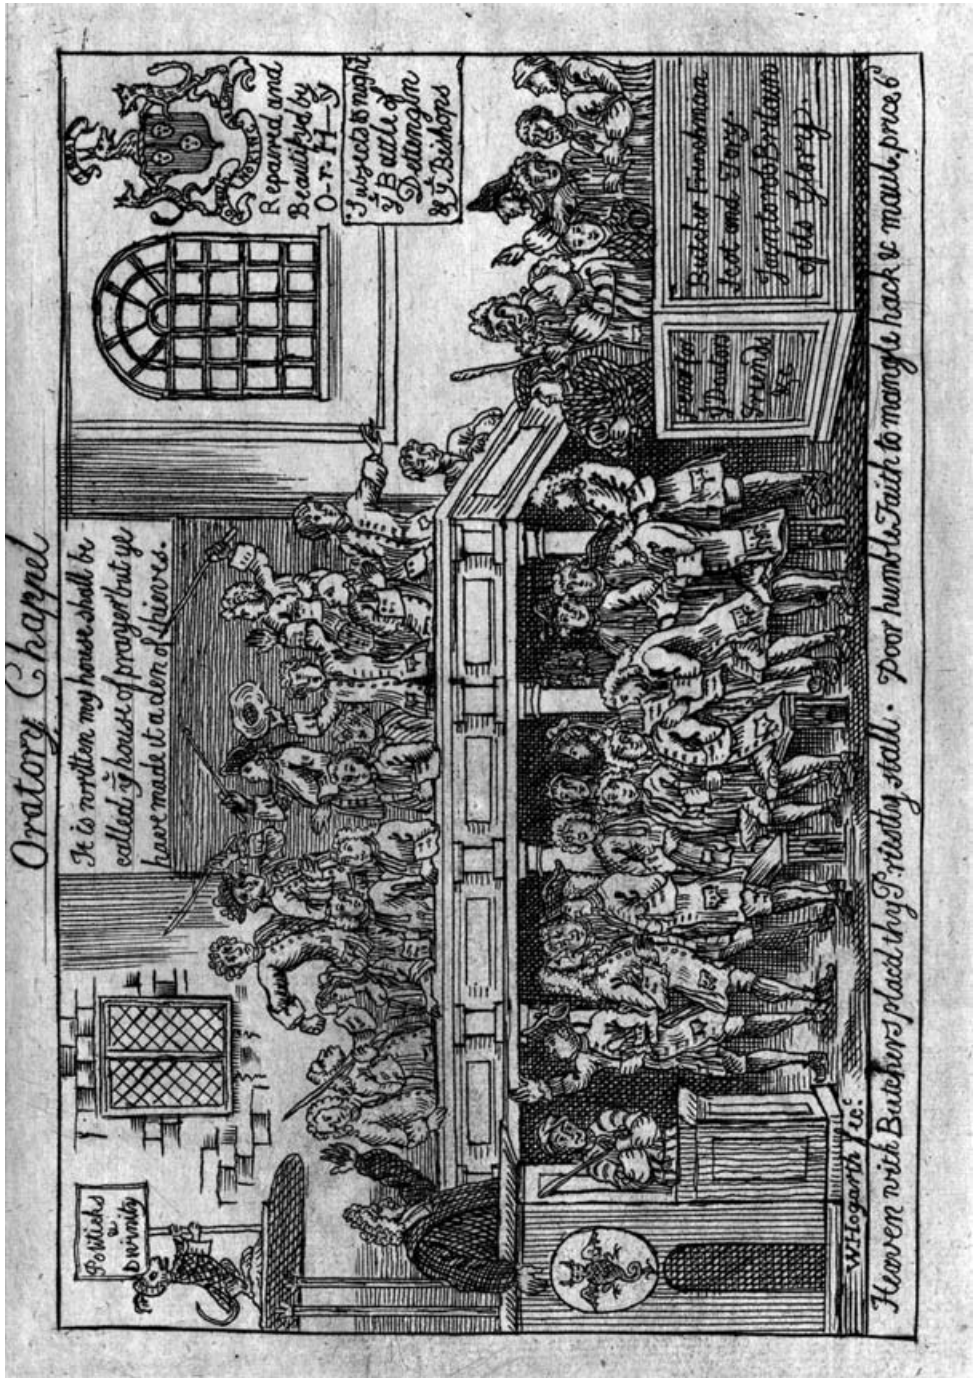 Oratory Chappel
Politicks
&
Divinity
It is written my house shall be
called yͤ house of prayer but ye
have made it a den of thieves.
Repaired and
Beautifyd by
O-r. H—y
Subject to night
yͤ Battle of
Dettingen
& yͤ Bishops
Pews for
yͤ Dadons
Friends
&c
Butcher Frenshman
Scot and Tory
Joint on Britain
of its Glory.
W Hogarth fec.ͭ
Heaven with Butchers placd thy Pristley stall. Poor humble Faith to mangle hack & maul. price 6ᵈ